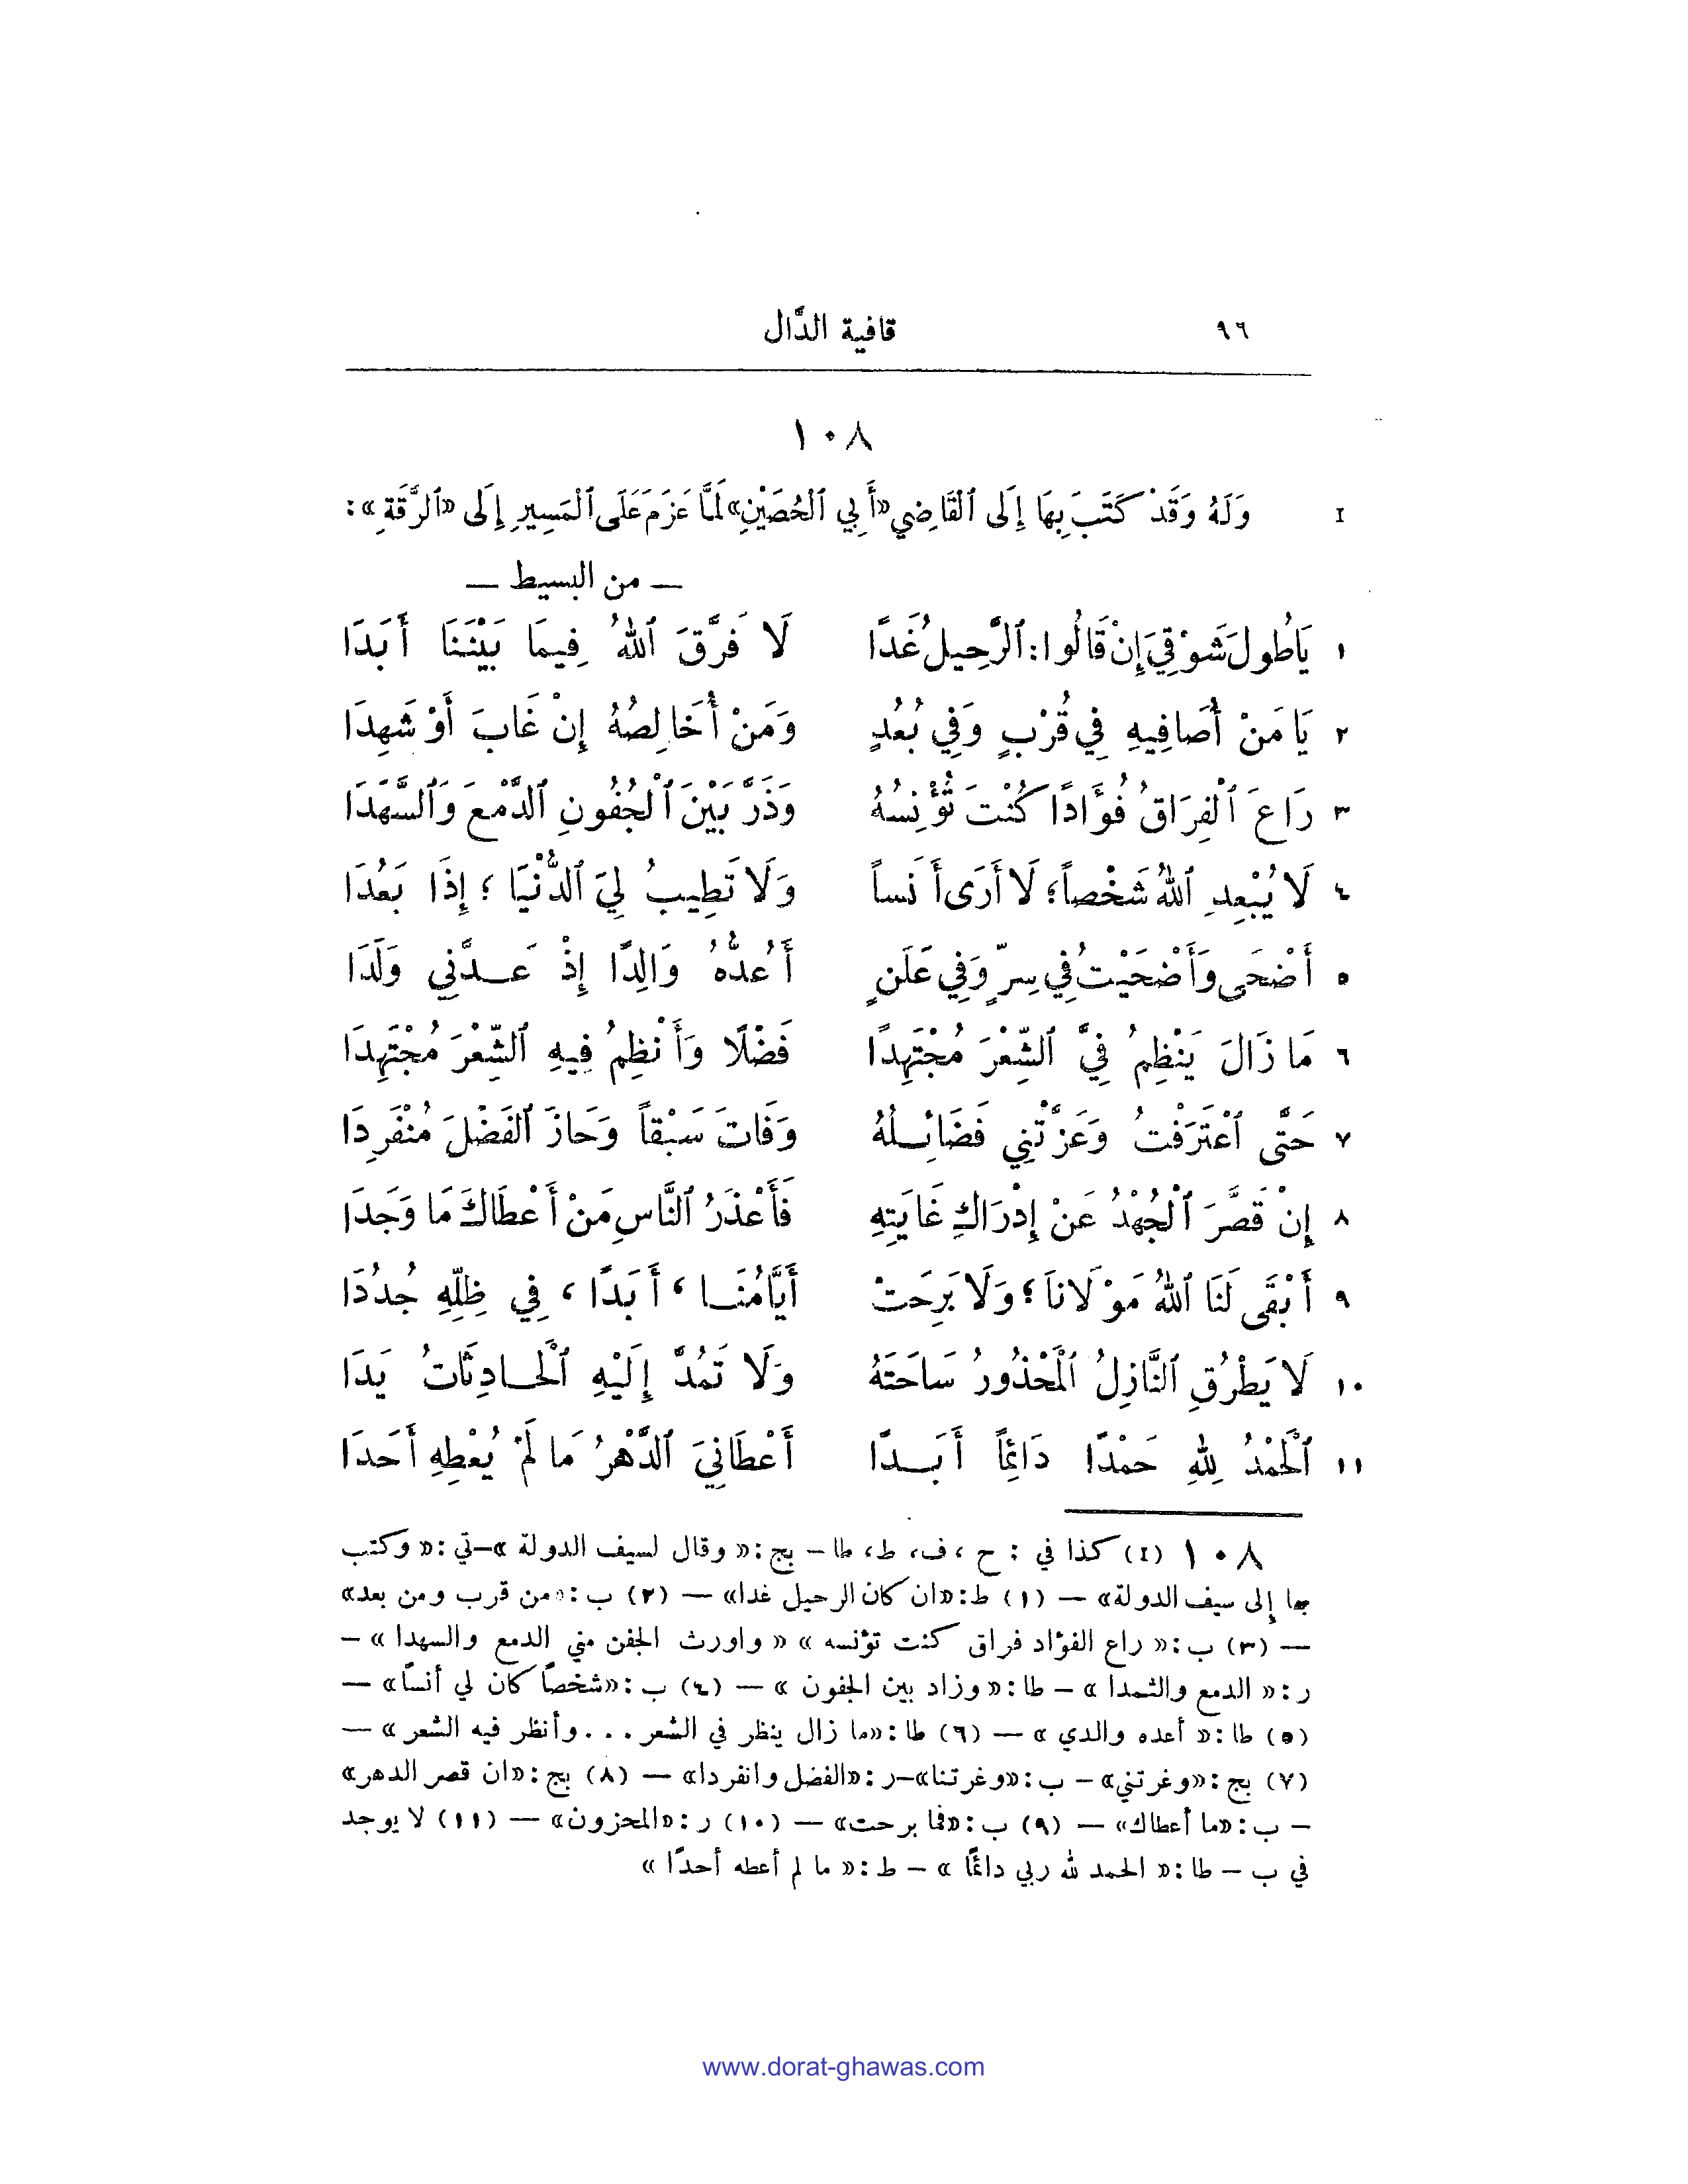 ٩٦ قافية الدَّال
١٠٨
I وَلَهُ وَقَدْ كَتَبَ بِهَا إِلَى ٱلْقَاضِي «أَبِي ٱلْحُصَيْنِ» لَمَّا عَزَمَ عَلَى ٱلْمَسِيرِ إِلَى «ٱلرَّقَّةِ»:
— من البسيط —
١ يَا طُولَ شَوْقِيَ إِنْ قَالُوا: ٱلرَّحِيلُ غَدًا لَا فَرَّقَ ٱللهُ فِيمَا بَيْنَنَا أَبَدَا
٢ يَا مَنْ أُصَافِيهِ فِي قُرْبٍ وَفِي بُعُدٍ وَمَنْ أُخَالِصُهُ إِنْ غَابَ أَوْ شَهِدَا
٣ رَاعَ ٱلْفِرَاقُ فُؤَادًا كُنْتَ تُؤْنِسُهُ وَذَرَّ بَيْنَ ٱلْجُفُونِ ٱلدَّمْعَ وَٱلسَّهَدَا
٤ لَا يُبْعِدِ ٱللهُ شَخْصاً؛ لَا أَرَى أَنَساً وَلَا تَطِيبُ لِيَ ٱلدُّنْيَا؛ إِذَا بَعُدَا
٥ أَضْحَى وَأَضْحَيْتُ فِي سِرٍّ وَفِي عَلَنٍ أَعُدُّهُ وَالِدًا إِذْ عَـــدَّنِي وَلَدَا
٦ مَا زَالَ يَنْظِمُ فِيَّ ٱلشِّعْرَ مُجْتَهِدًا فَضْلًا وَأَنْظِمُ فِيهِ ٱلشِّعْرَ مُجْتَهِدَا
٧ حَتَّى ٱعْتَرَفْتُ وَعَزَّتْنِي فَضَائِـلُهُ وَفَاتَ سَبْقاً وَحَازَ ٱلفَضْلَ مُنْفَرِدَا
٨ إِنْ قَصَّرَ ٱلْجُهْدُ عَنْ إِدْرَاكِ غَايَتِهِ فَأَعْذَرُ ٱلنَّاسِ مَنْ أَعْطَاكَ مَا وَجَدَا
٩ أَبْقَى لَنَا ٱللهُ مَوْلَانَا؛ وَلَا بَرِحَتْ أَيَّامُنَـا، أَبَدًا، فِي ظِلِّهِ جُدُدَا
١٠ لَا يَطْرُقِ ٱلنَّازِلُ ٱلْمَحْذُورُ سَاحَتَهُ وَلَا تَمُدَّ إِلَيْهِ ٱلْحَـادِثَاتُ يَدَا
١١ ٱلْحَمْدُ لِلهِ حَمْدًا دَائِماً أَبَـــدًا أَعْطَانِيَ ٱلدَّهْرُ مَا لَمْ يُعْطِهِ أَحَدَا
١٠٨ (I) كذا في : ح ، ف، ط، طا – بج : « وقال لسيف الدولة »–تي : « وكتب
بها إلى سيف الدولة» — (١) ط : «ان كان الرحيل غدا» — (٢) ب : «من قرب ومن بعد»
— (٣) ب : « راع الفؤاد فراق كنت تؤنسه » « واورث الجفن مني الدمع والسهدا » –
ر : « الدمع والثمدا » – طا : « وزاد بين الجفون » — (٤) ب : «شخصاً كان لي أنسًا» —
(٥) طا : « أعده والدي » — (٦) طا : «ما زال ينظر في الشعر ... وأنظر فيه الشعر » —
(٧) بج : «وغرتني» – ب : «وغرتنا»–ر : «الفضل وانفردا» — (٨) بج : «ان قصر الدهر»
– ب : «ما أعطاك» — (٩) ب : «فما برحت» — (١٠) ر : «المحزون» — (١١) لا يوجد
في ب – طا : « الحمد لله ربي دائمًا » – ط : « ما لم أعطه أحدًا »
www.dorat-ghawas.com